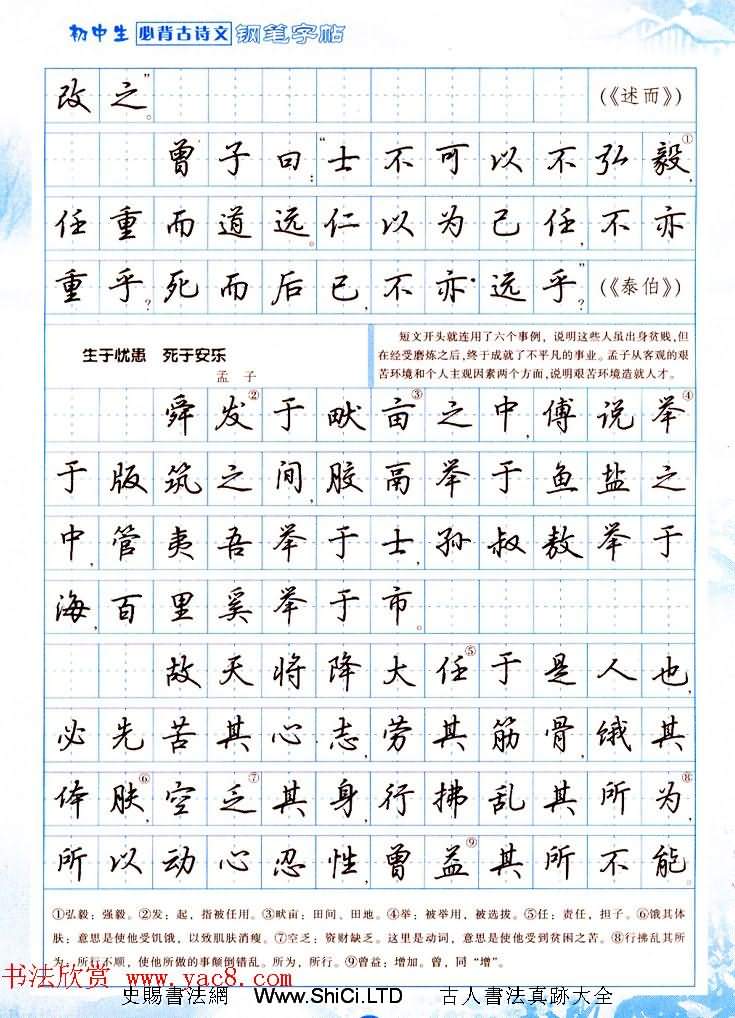 初中生 必背古诗文 钢笔字帖
改之。” (《述而》)
曾子曰:“士不可以不弘毅①,
任重而道远。仁以为己任,不亦
重乎?死而后已,不亦远乎?” (《泰伯》)
生于忧患 死于安乐
孟 子
短文开头就连用了六个事例,说明这些人虽出身贫贱,但
在经受磨炼之后,终于成就了不平凡的事业。孟子从客观的艰
苦环境和个人主观因素两个方面,说明艰苦环境造就人才。
舜发②于畎亩③之中,傅说举④
于版筑之间,胶鬲举于鱼盐之
中,管夷吾举于士,孙叔敖举于
海,百里奚举于市。
故天将降大任⑤于是人也,
必先苦其心志,劳其筋骨,饿其
体肤⑥,空乏⑦其身,行拂乱其所为⑧,
所以动心忍性,曾益⑨其所不能。
①弘毅:强毅。②发:起,指被任用。③畎亩:田间、田地。④举:被举用,被选拔。⑤任:责任,担子。⑥饿其体
肤:意思是使他受饥饿,以致肌肤消瘦。⑦空乏:资财缺乏。这里是动词,意思是使他受到贫困之苦。⑧行拂乱其所
为:所行不顺,使他所做的事颠倒错乱。所为,所行。⑨曾益:增加。曾,同“增”。
书法欣赏 www.yac8.com
史賜書法網 www.ShiCi.LTD 古人書法真跡大全